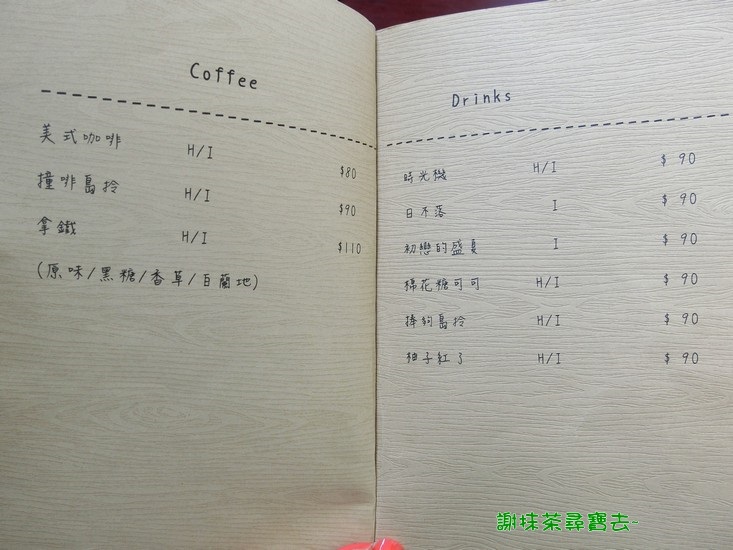 Coffee
美式咖啡 H/I $80
撞啡島拎 H/I $90
拿鐵 H/I $110
(原味/黑糖/香草/百蘭地)
Drinks
時光機 H/I $ 90
日不落 I $ 90
初戀的盛夏 I $ 90
棉花糖可可 H/I $ 90
島拎 H/I $ 90
柚子紅了 H/I $ 90
謝抹茶尋寶去~